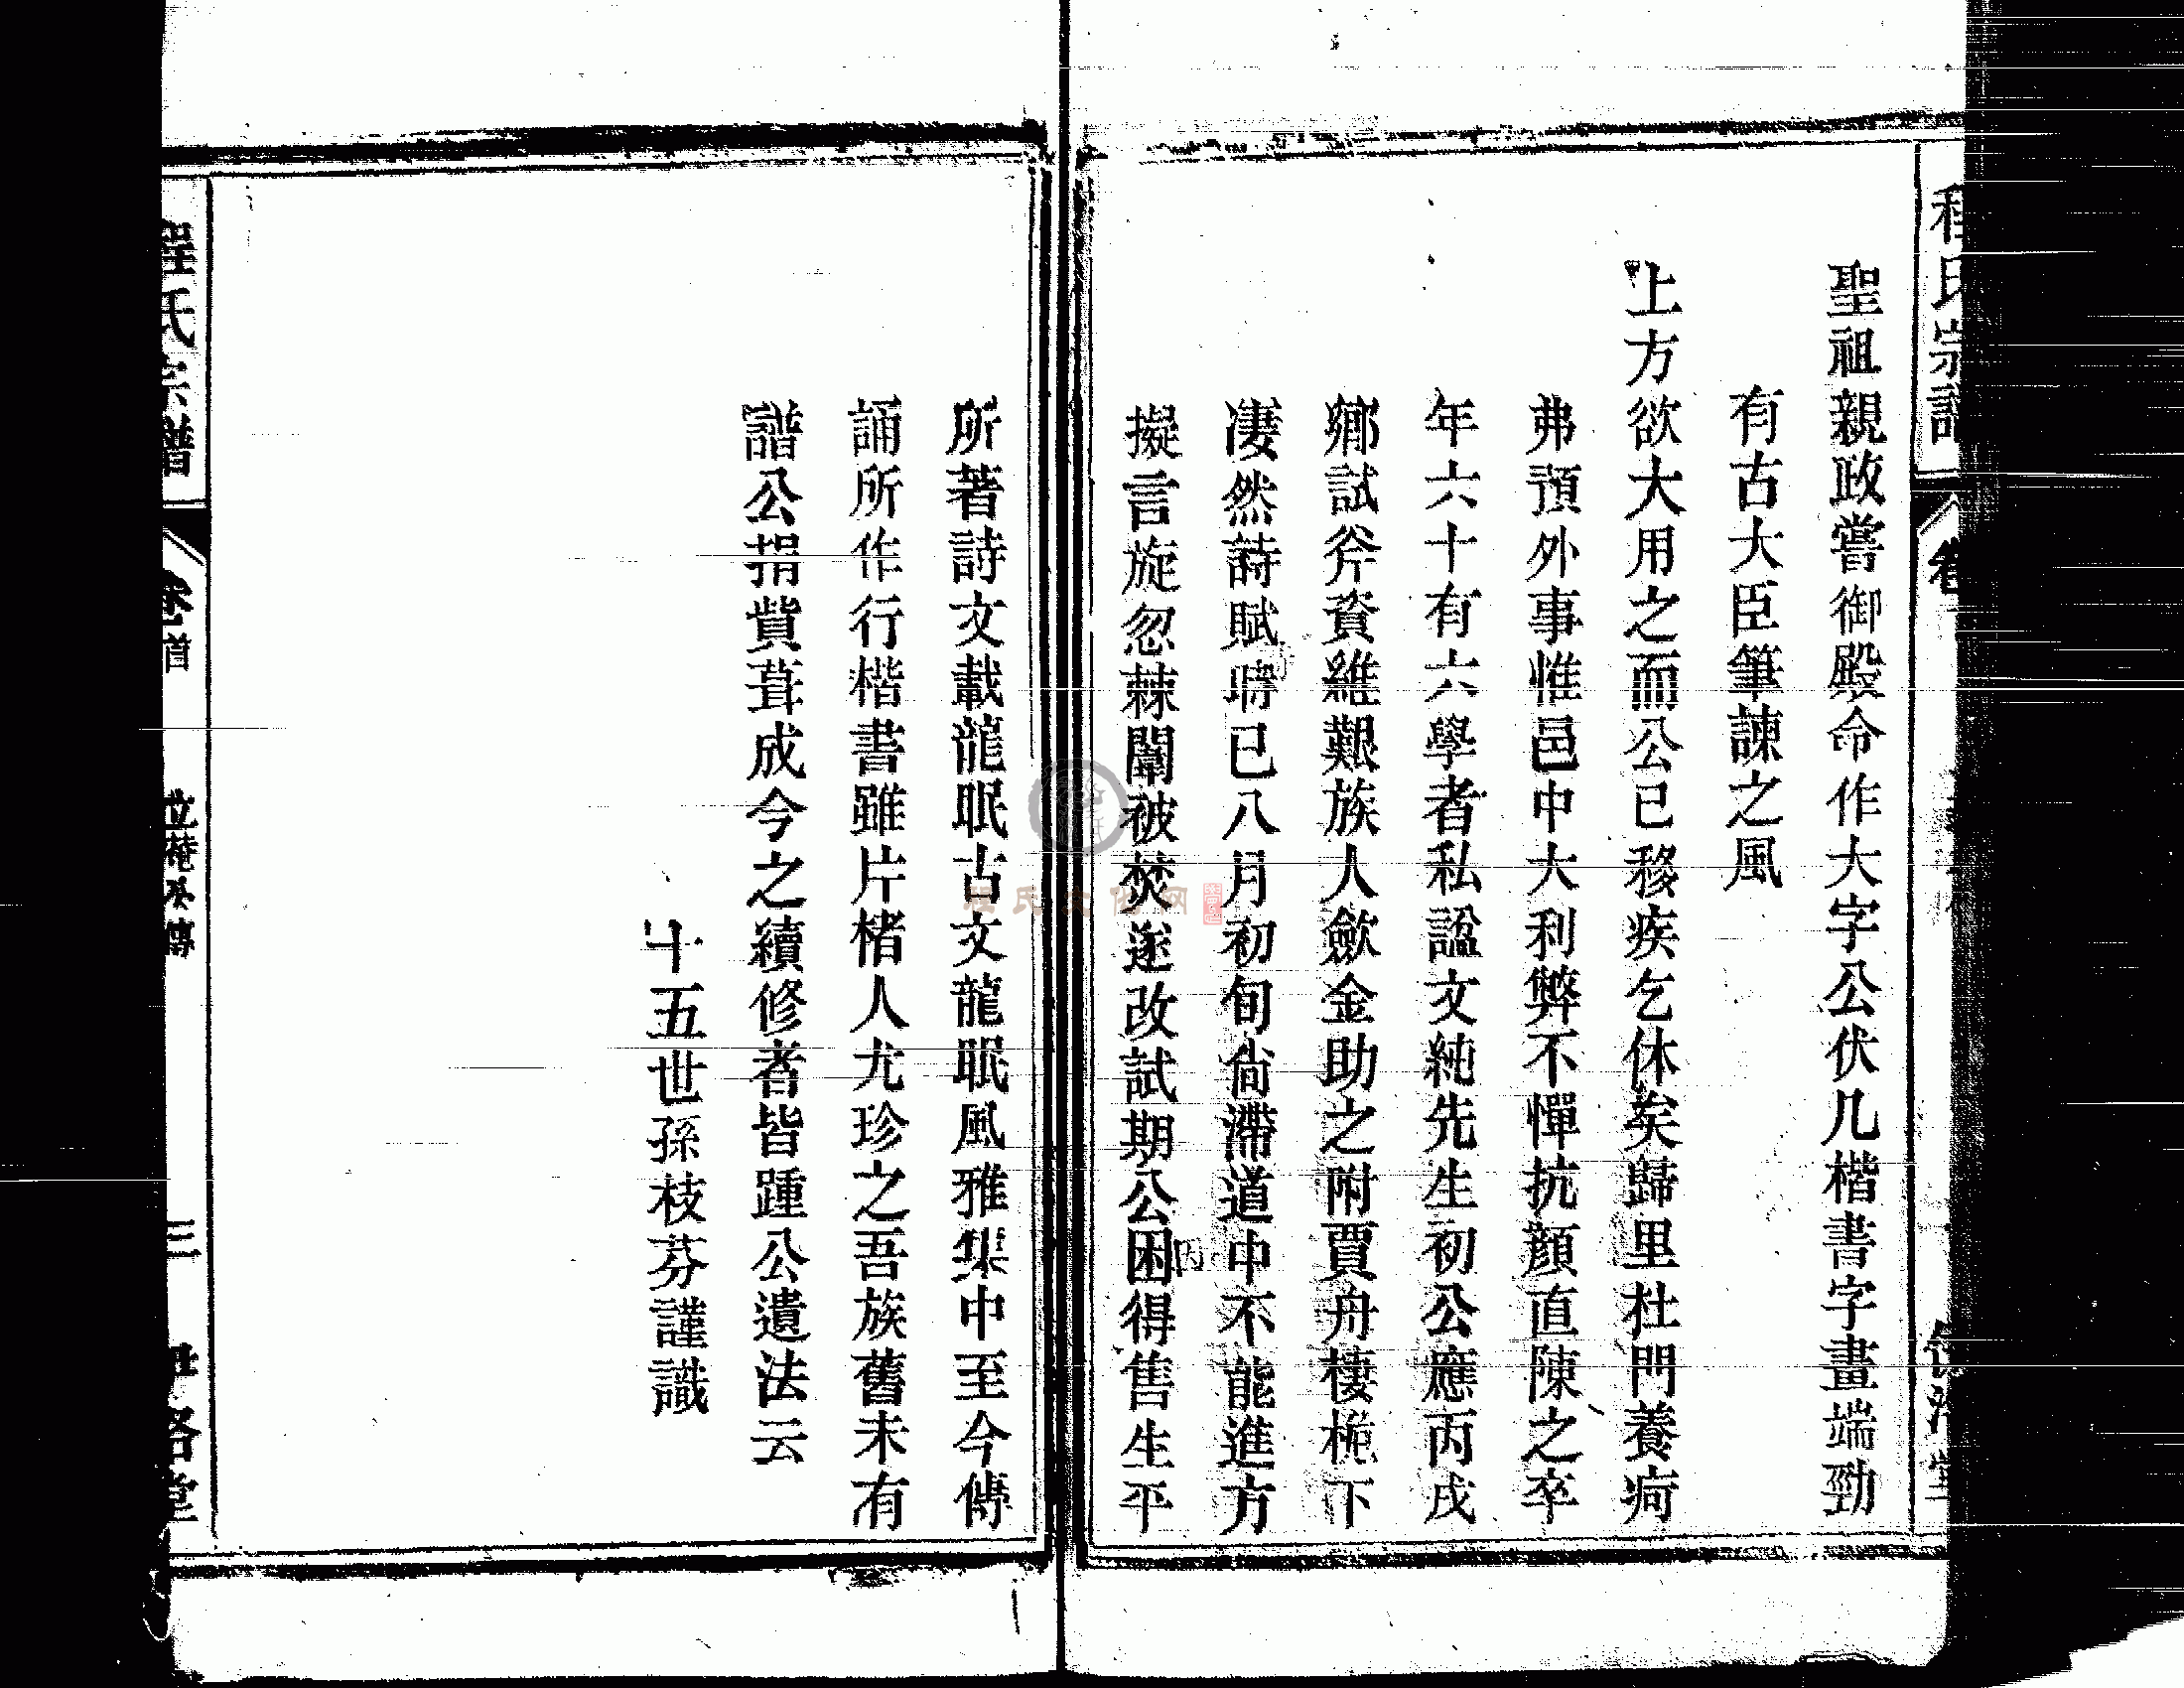 程氏宗譜
卷
聖祖親政嘗御殿命作大字公伏几楷書字畫端勁
有古大臣筆諫之風
上方欲大用之而公已移疾乞休矣歸里杜門養疴
弗預外事惟邑中大利弊不憚抗顏直陳之卒
年六十有六學者私諡文純先生初公應丙戌
鄉試斧資維艱族人歛金助之附賈舟棲桅下
凄然詩賦時已八月初旬尙滯道中不能進方
擬言旋忽棘闈被焚遂改試期公因得售生平
所著詩文載龍眠古文龍眠風雅集中至今傳
誦所作行楷書雖片楮人尤珍之吾族舊未有
譜公捐貲葺成今之續修者皆踵公遺法云
十五世孫枝芬謹識
程氏宗譜
卷首
立菴公傳
三
洛堂
程氏文化网